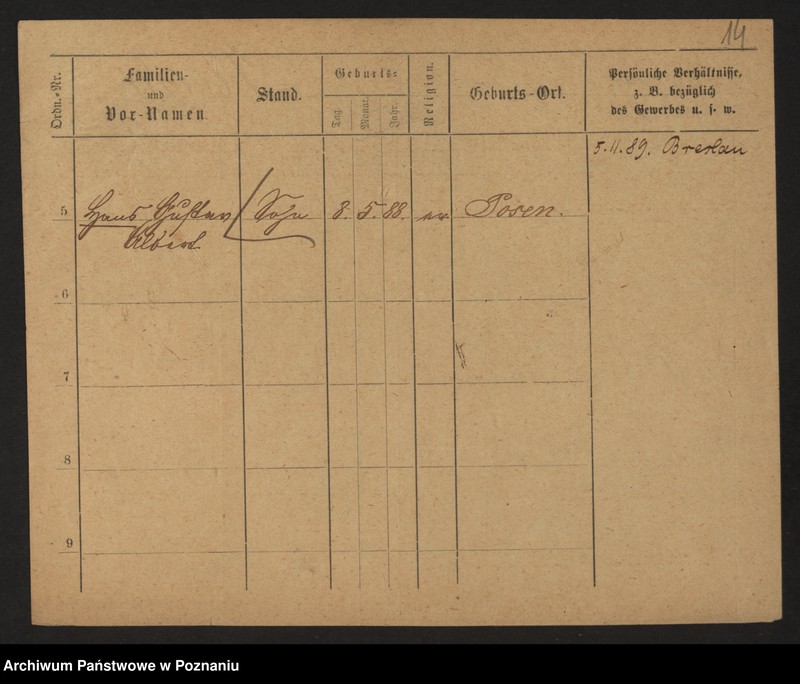 14
Ordn.-Nr.
Familien-
und
Vor-Namen.
Stand.
Geburts-
Tag.
Monat.
Jahr.
Religion.
Geburts-Ort.
Persönliche Verhältnisse,
z. B. bezüglich
des Gewerbes u. s. w.
5.11.89. Breslau
5
Hans Gustav
Albert
Sohn
8. 5. 88. ev. Posen.
6
7
8
9
Archiwum Państwowe w Poznaniu